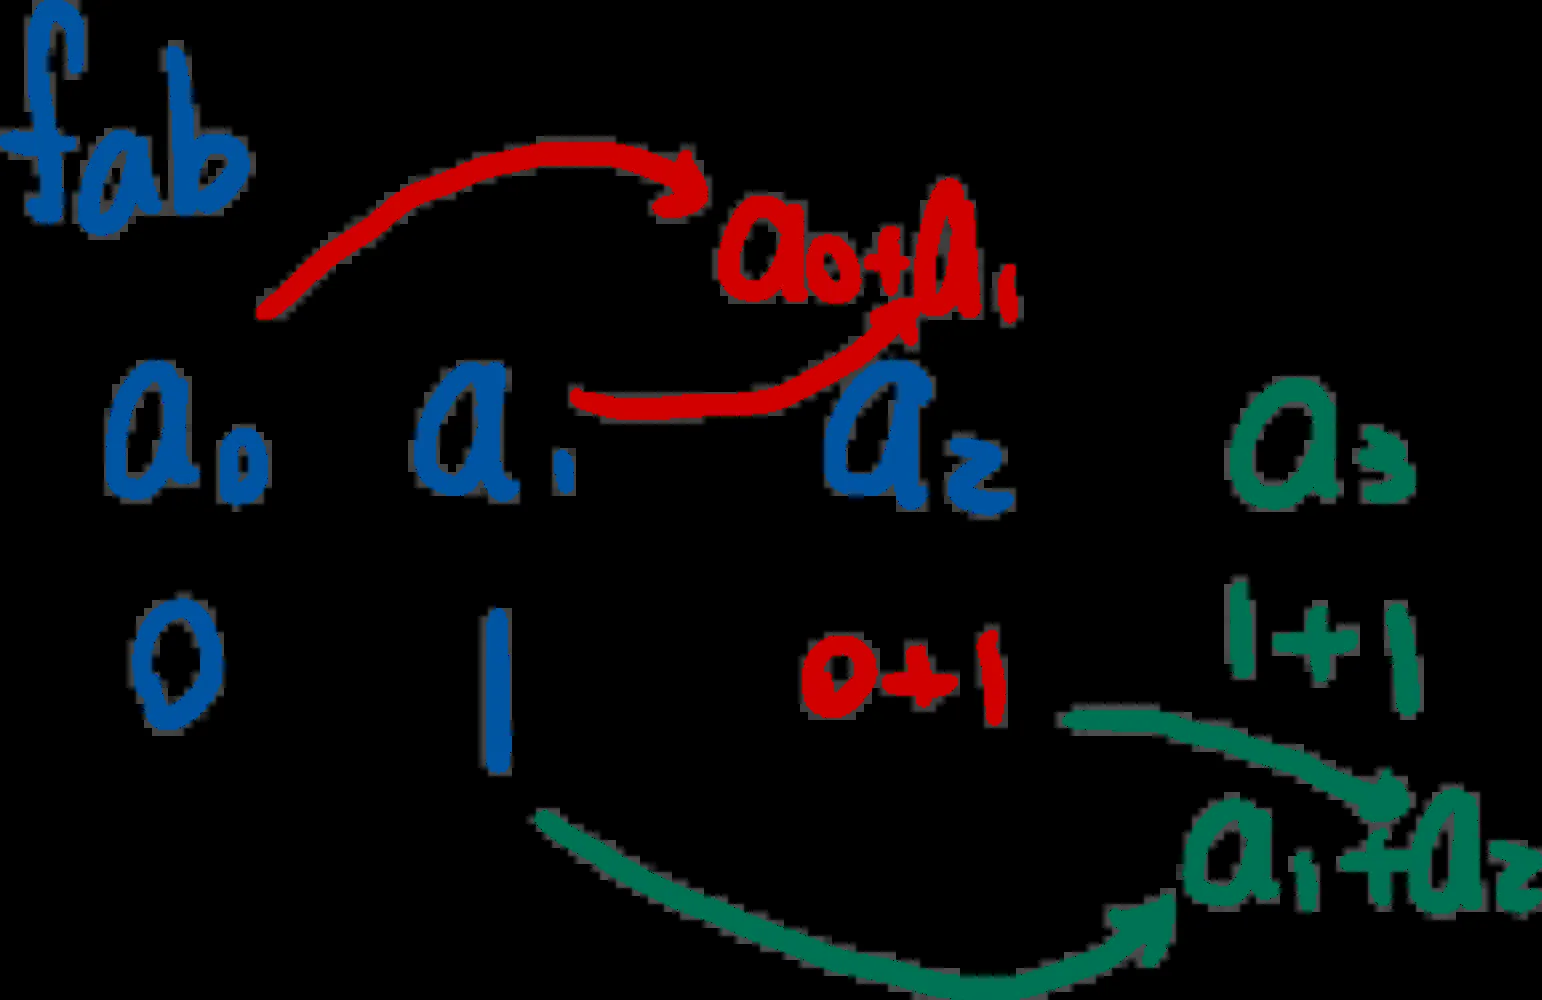 fab
a₀+a₁
a₀ a₁ a₂ a₃
0 1 0+1 1+1
a₁+a₂